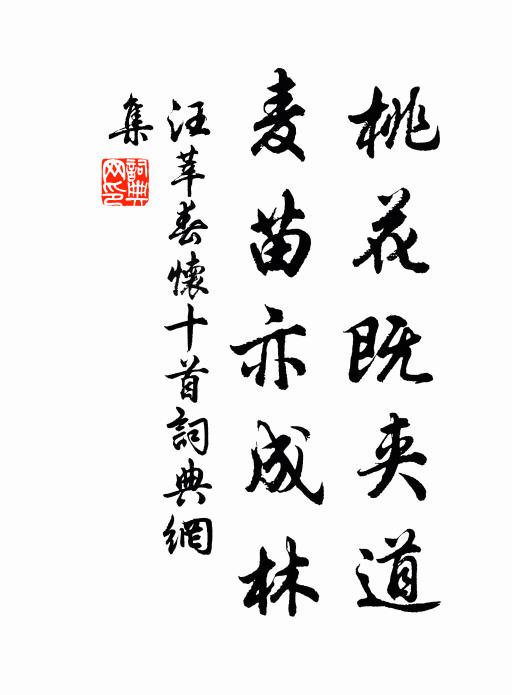 桃花既夹道
麦苗亦成林
汪莘春懷十首詞典網
集
詞典網印